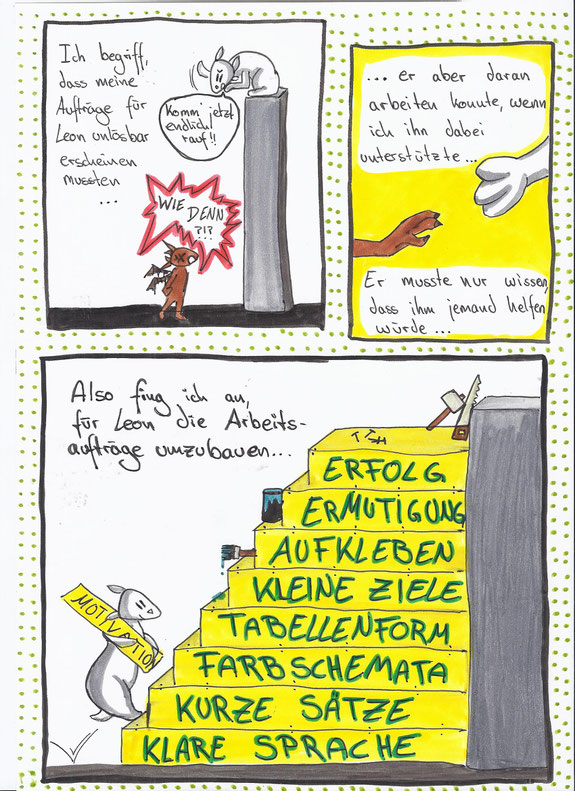 Ich begriff,
dass meine
Aufträge für
Leon unlösbar
erscheinen
mussten
...
Komm' jetzt
endlich
rauf!!
WIE DENN
?!?
... er aber daran
arbeiten konnte, wenn
ich ihn dabei
unterstützte...
Er musste nur wissen,
dass ihm jemand helfen
würde...
Also fing ich an,
für Leon die Arbeits-
aufträge umzubauen...
ERFOLG
ERMUTIGUNG
AUFKLEBEN
KLEINE ZIELE
TABELLENFORM
FARBSCHEMATA
KURZE SÄTZE
KLARE SPRACHE
MOTIVATION